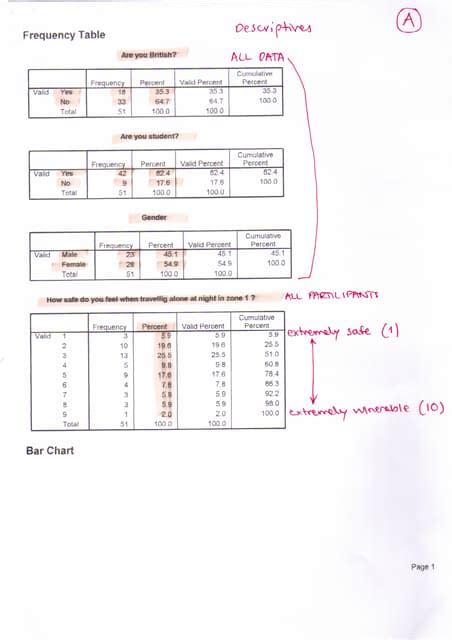 Descriptives
A
Frequency Table
ALL DATA
Are you British?
Frequency Percent Valid Percent Cumulative Percent
Valid Yes 18 35.3 35.3 35.3
No 33 64.7 64.7 100.0
Total 51 100.0 100.0
Are you student?
Frequency Percent Valid Percent Cumulative Percent
Valid Yes 42 82.4 82.4 82.4
No 9 17.6 17.6 100.0
Total 51 100.0 100.0
Gender
Frequency Percent Valid Percent Cumulative Percent
Valid Male 23 45.1 45.1 45.1
Female 28 54.9 54.9 100.0
Total 51 100.0 100.0
How safe do you feel when travellig alone at night in zone 1 ? ALL PARTICIPANTS
Frequency Percent Valid Percent Cumulative Percent
Valid 1 3 5.9 5.9 5.9 extremely safe (1)
2 10 19.6 19.6 25.5
3 13 25.5 25.5 51.0
4 5 9.8 9.8 60.8
5 9 17.6 17.6 78.4
6 4 7.8 7.8 86.3
7 3 5.9 5.9 92.2
8 3 5.9 5.9 98.0
9 1 2.0 2.0 100.0 extremely vulnerable (10)
Total 51 100.0 100.0
Bar Chart
Page 1